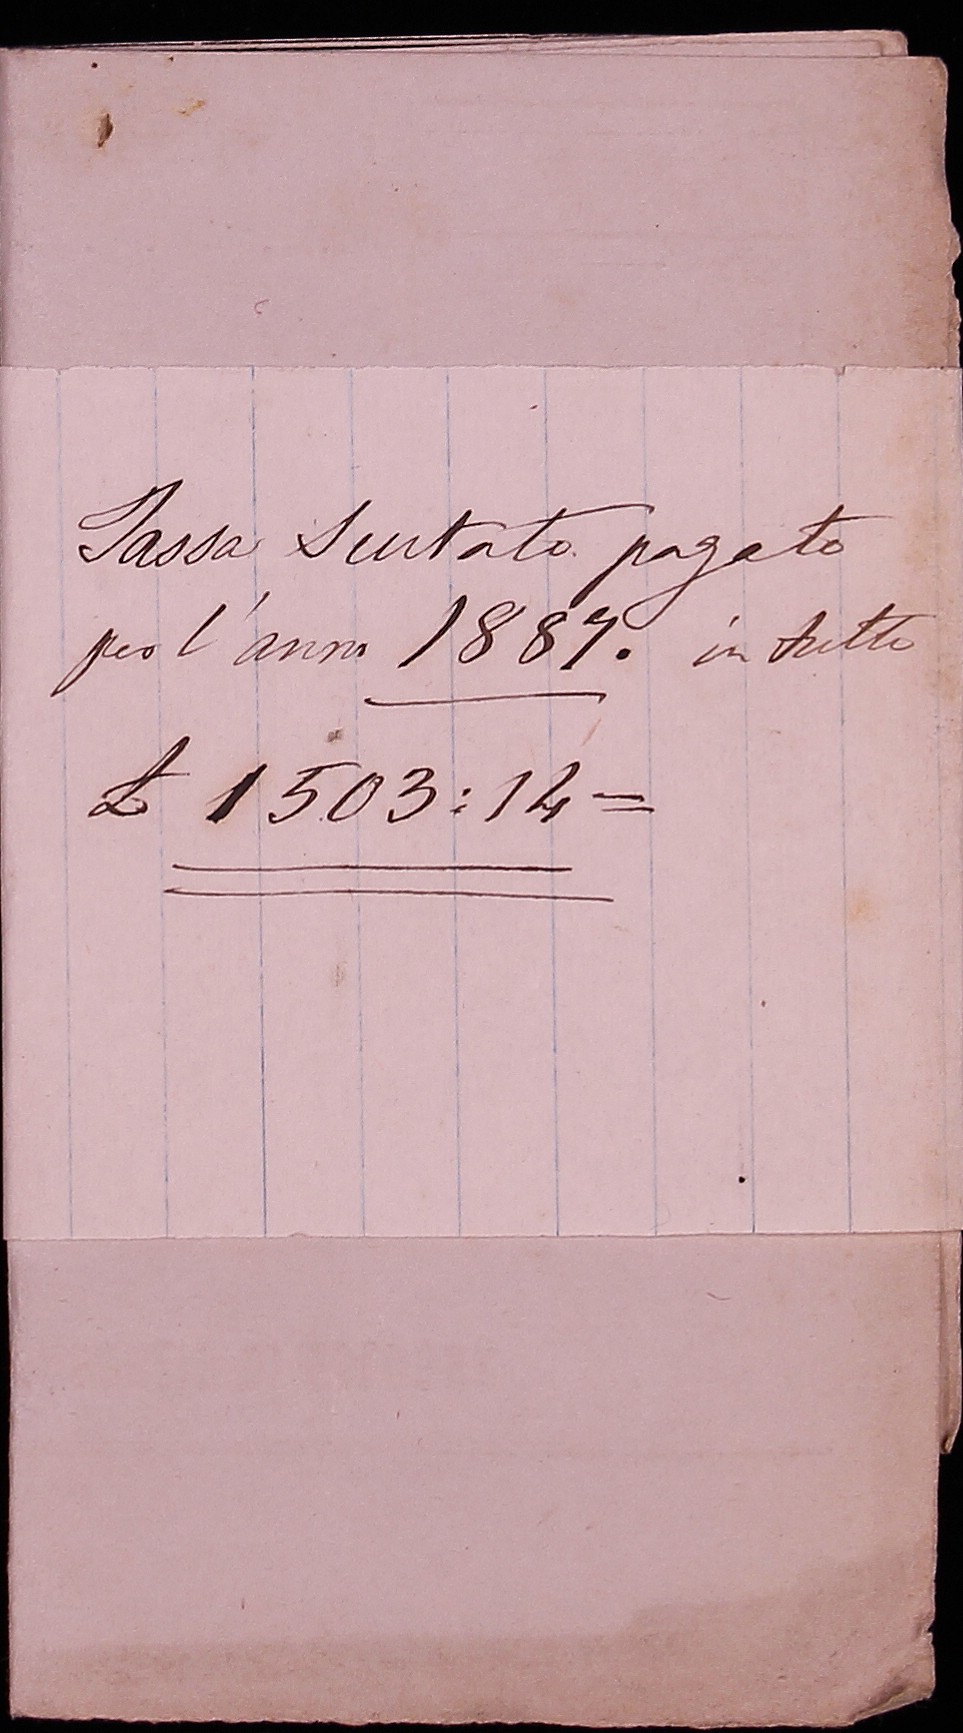 Tassa pagato
per l'anno 1887. in tutto
£ 1503:14=